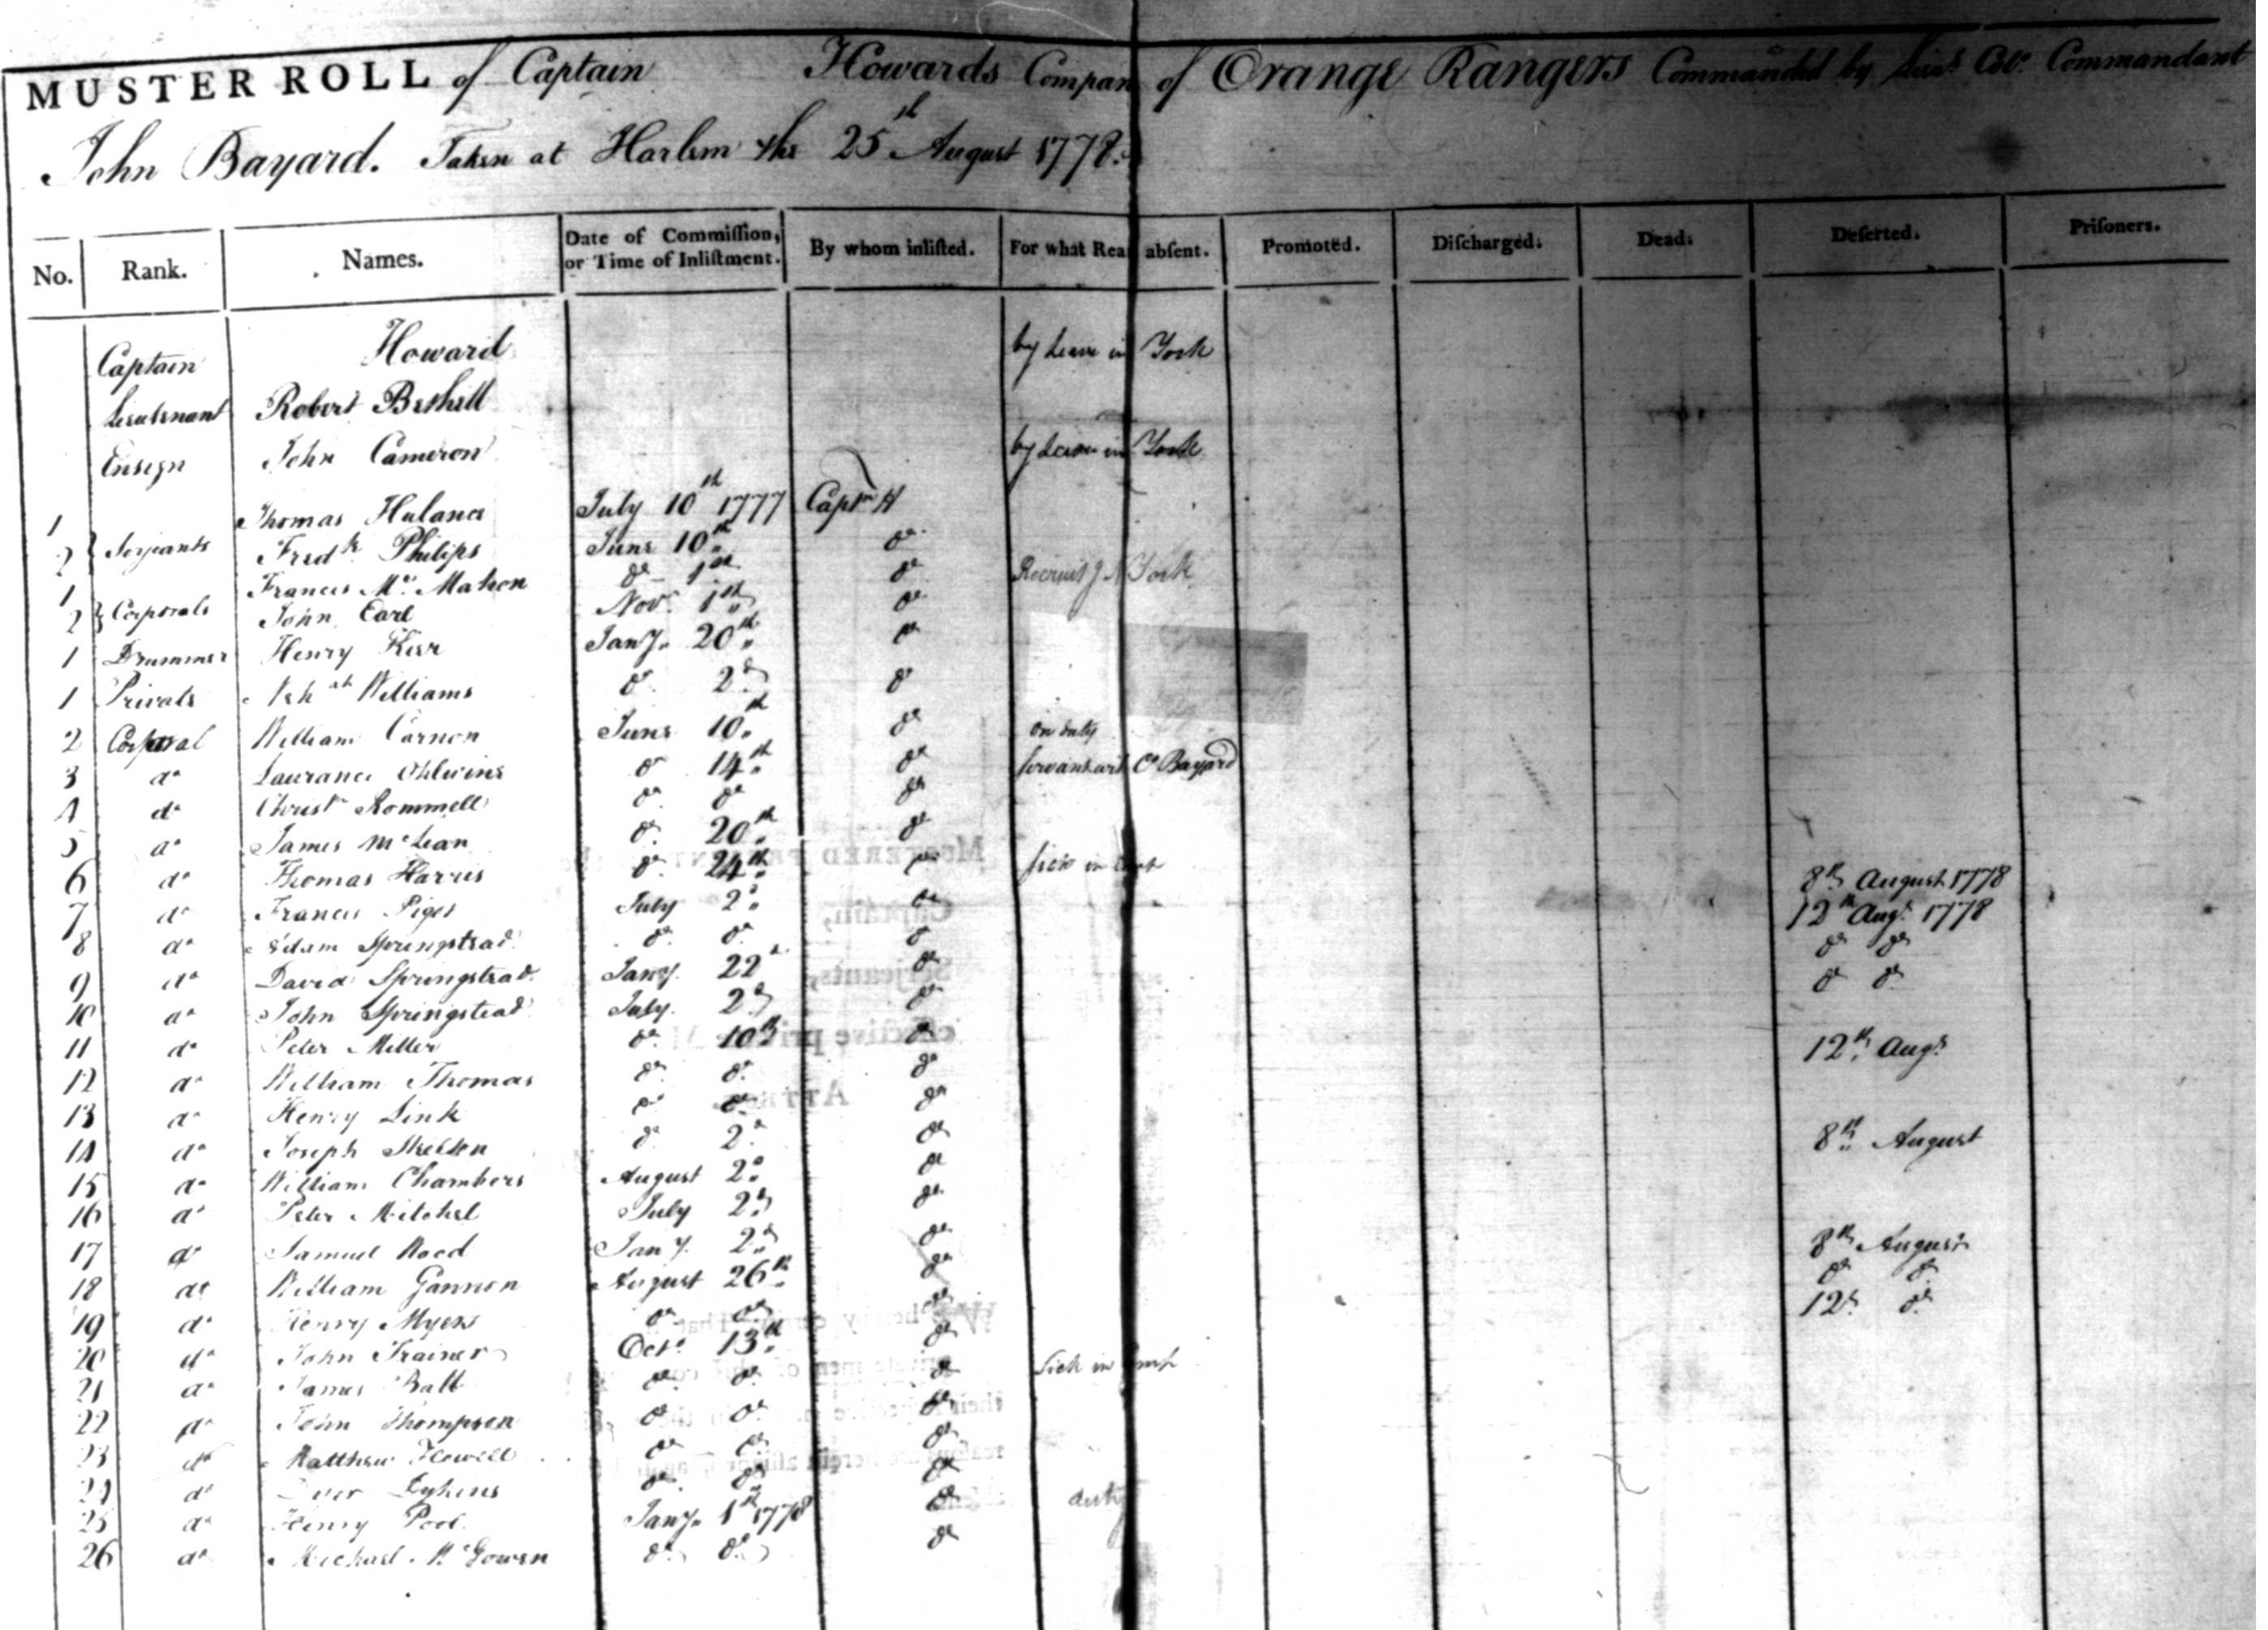 MUSTER ROLL of Captain Howards Compan of Orange Rangers Commanded by Lieut. Colo. Commandant
John Bayard. Taken at Harlem the 25th August 1778.
No. Rank. Names. Date of Commission, or Time of Inlistment. By whom inlisted. For what Rea absent. Promoted. Discharged. Dead. Deserted. Prisoners.
Captain Howard by Leave in York
Lieutenant Robert Bethell
Ensign John Cameron by Leave in York
1 Thomas Hulance July 10th 1777 Captn H
2 Serjeants Fredk. Philips June 10th do
1 Francis Mc Mahon do 1st do Recruitg N York
2 Corporals John Earl Novr. 1st do
1 Drummer Henry Kerr Jany. 20th do
1 Private Williams do 2d do
2 Corporal William Carnon June 10th do on duty
3 do Laurance do 14th do Co Bayard
4 do Christr Rommell do do do
5 do James McLean do 20th do
6 do Thomas Harris do 24th do sick in 8th August 1778
7 do Francis Piges July 2d do 12th Augt 1778
8 do Adam Springstead do do do do do
9 do David Springstead Jany. 22d do do do
10 do John Springstead July. 2d do
11 do Peter Miller do 10th do 12th Augt
12 do William Thomas do do do
13 do Henry Link do do do
14 do Joseph Skelton do 2d do 8th August
15 do William Chambers August 2d do
16 do Peter Mitchel July 2d do
17 do Samuel Reed Jany. 2d do 8th August
18 do William Gannon August 26th do do do
19 do Henry Myers do do do 12th do
20 do John Trainer Octr. 13th do
21 do James Ball do do do sick in
22 do John Thompson do do do
23 do Matthew Howell do do do
24 do Dykins do do do
25 do Henry Pool Jany. 1st 1778 do duty
26 do Michael Mc Gowen do do do